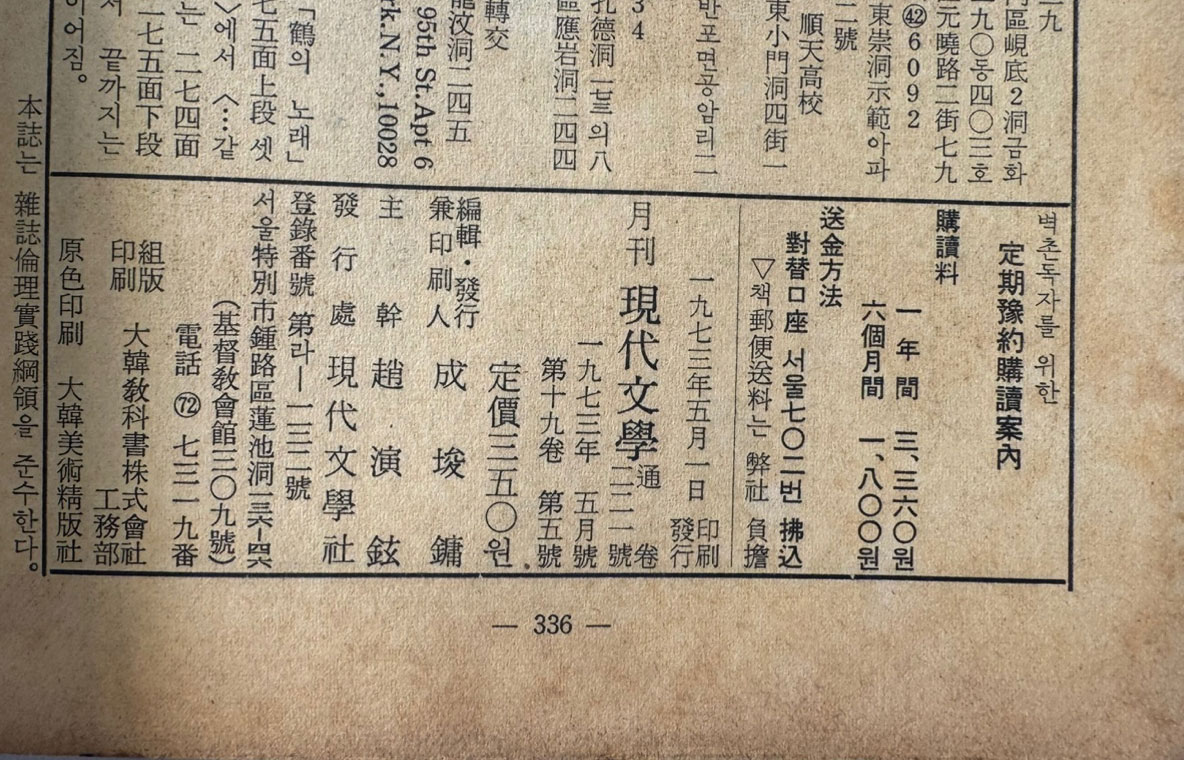 三九
區峴底2洞금화
九〇동四〇三호
元曉路二街七九
㊷6092
東崇洞示範아파
二號
順天高校
東小門洞四街一
반포면공암리二
34
孔德洞一七三의八
區應岩洞二四四
轉交
龍汶洞二四五
95th St. Apt 6
rk. N. Y., 10028
「鶴의 노래」
七五面上段 셋
〉에서 〈…같
는 二七四面
二七五面下段
서 끝까지는
이어짐。
벽촌독자를 위한
定期豫約購讀案內
購讀料
一年間 三、三六〇원
六個月間 一、八〇〇원
送金方法
對替口座 서울七〇二번 拂込
▽책郵便送料는 弊社 負擔
一九七三年五月一日 印刷 發行
月刊 現代文學 通卷 二二一號
一九七三年 五月號
第十九卷 第五號
定價三五〇원
編輯・發行
兼印刷人 成埈鏞
主幹 趙演鉉
發行處 現代文學社
登錄番號 第라―一三二號
서울特別市鍾路區蓮池洞一三六―四六
(基督敎會館三〇九號)
電話 ㊆㊁ 七三一九番
組版
印刷 大韓敎科書株式會社
工務部
原色印刷 大韓美術精版社
本誌는 雜誌倫理實踐綱領을 준수한다。
— 336 —